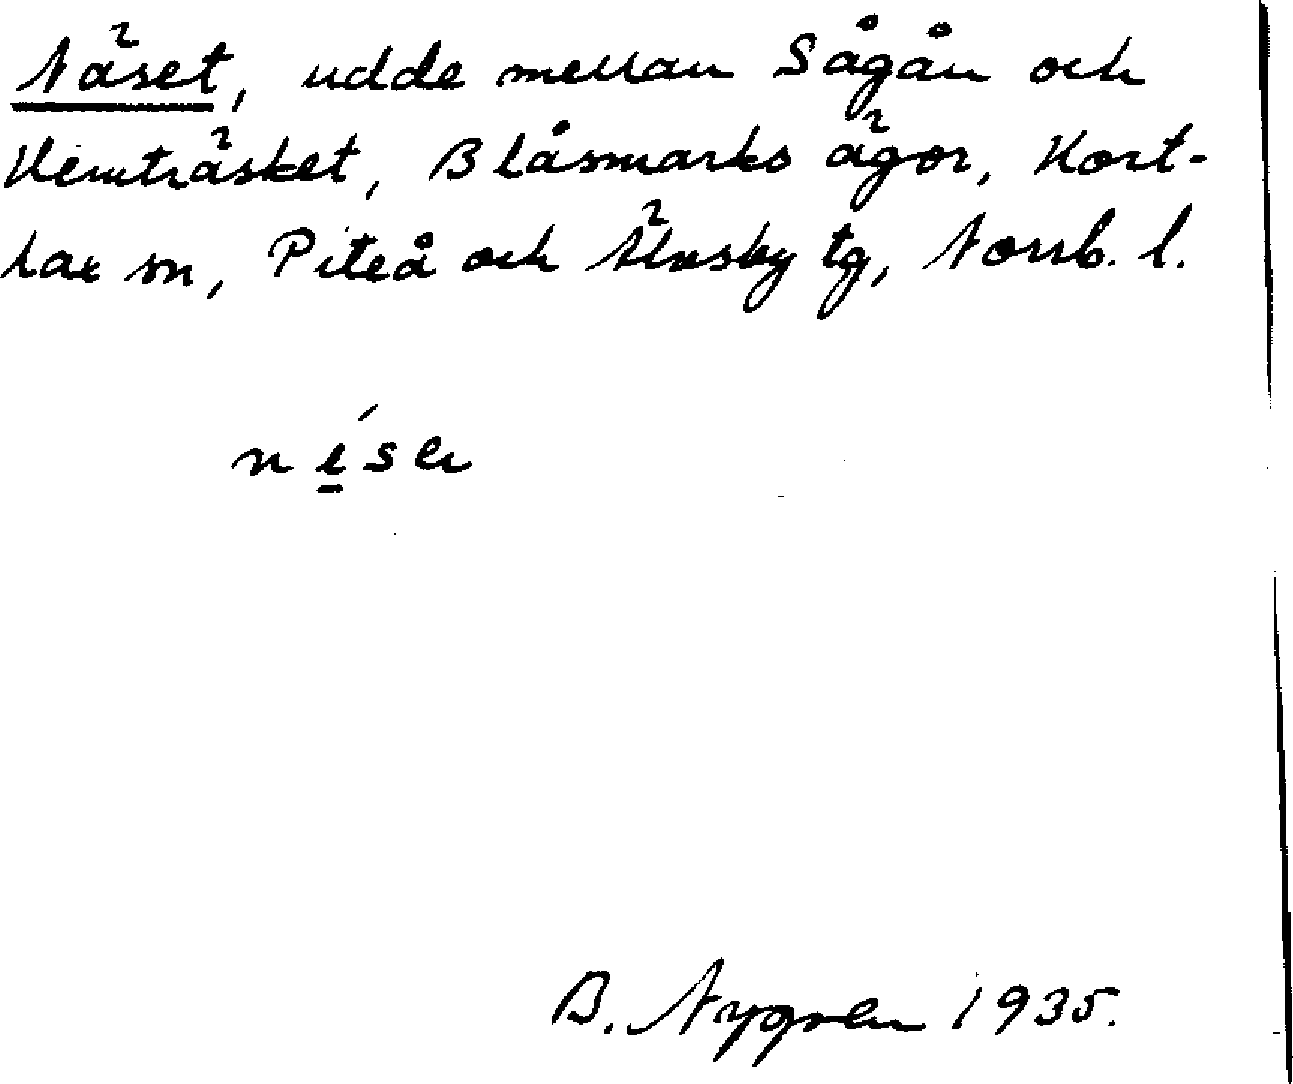 Näset, udde mellan Sågån och
Hemträsket, Blåsmarks ägor, Hort-
lax sn, Piteå och Älvsby tg, Norrb. l.
B. Nygren 1935.